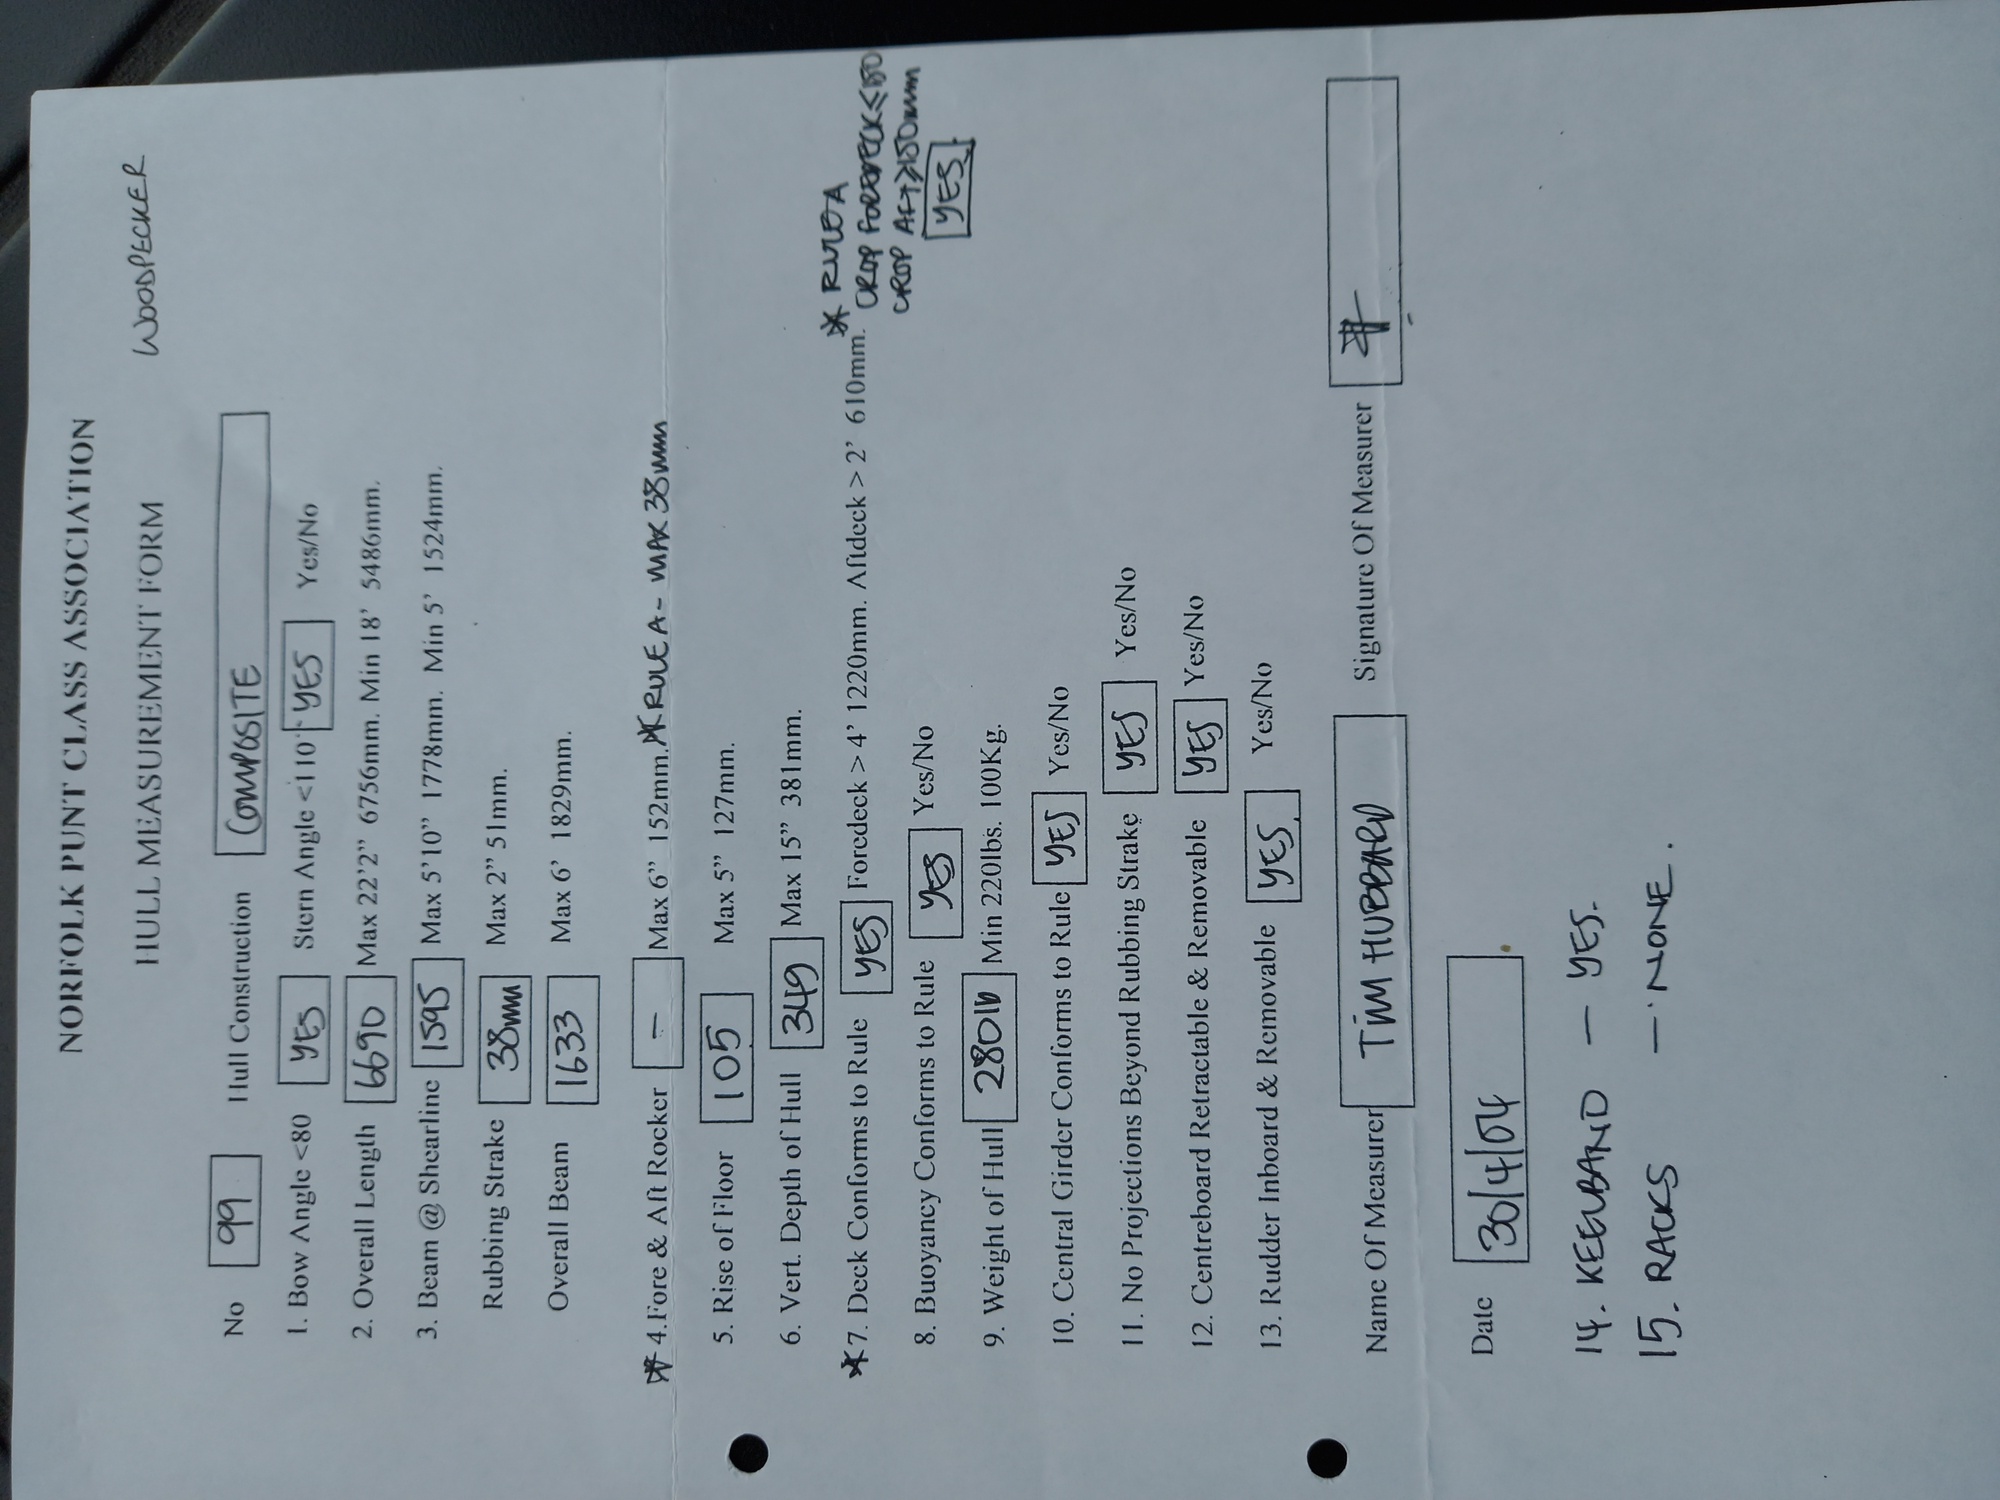 NORFOLK PUNT CLASS ASSOCIATION
HULL MEASUREMENT FORM WOODPECKER
No 99 Hull Construction COMPOSITE
1. Bow Angle <80 YES Stern Angle <110 YES Yes/No
2. Overall Length 6690 Max 22'2" 6756mm. Min 18' 5486mm.
3. Beam @ Shearline 1595 Max 5'10" 1778mm. Min 5' 1524mm.
Rubbing Strake 38mm Max 2" 51mm.
Overall Beam 1633 Max 6' 1829mm.
* 4.Fore & Aft Rocker - Max 6" 152mm. * RULE A - MAX 38mm
5. Rise of Floor 105 Max 5" 127mm.
6. Vert. Depth of Hull 349 Max 15" 381mm.
* 7. Deck Conforms to Rule YES Foredeck > 4' 1220mm. Aftdeck > 2' 610mm.
* RULE A
CROP FOREDECK ≤ 150
CROP AFT ≥ 150mm
YES.
8. Buoyancy Conforms to Rule YES Yes/No
9. Weight of Hull 280lb Min 220lbs. 100Kg.
10. Central Girder Conforms to Rule YES Yes/No
11. No Projections Beyond Rubbing Strake YES Yes/No
12. Centreboard Retractable & Removable YES Yes/No
13. Rudder Inboard & Removable YES. Yes/No
Name Of Measurer TIM HUBBARD Signature Of Measurer
Date 30/4/04
14. KEELBAND - YES.
15. RACKS - NONE.